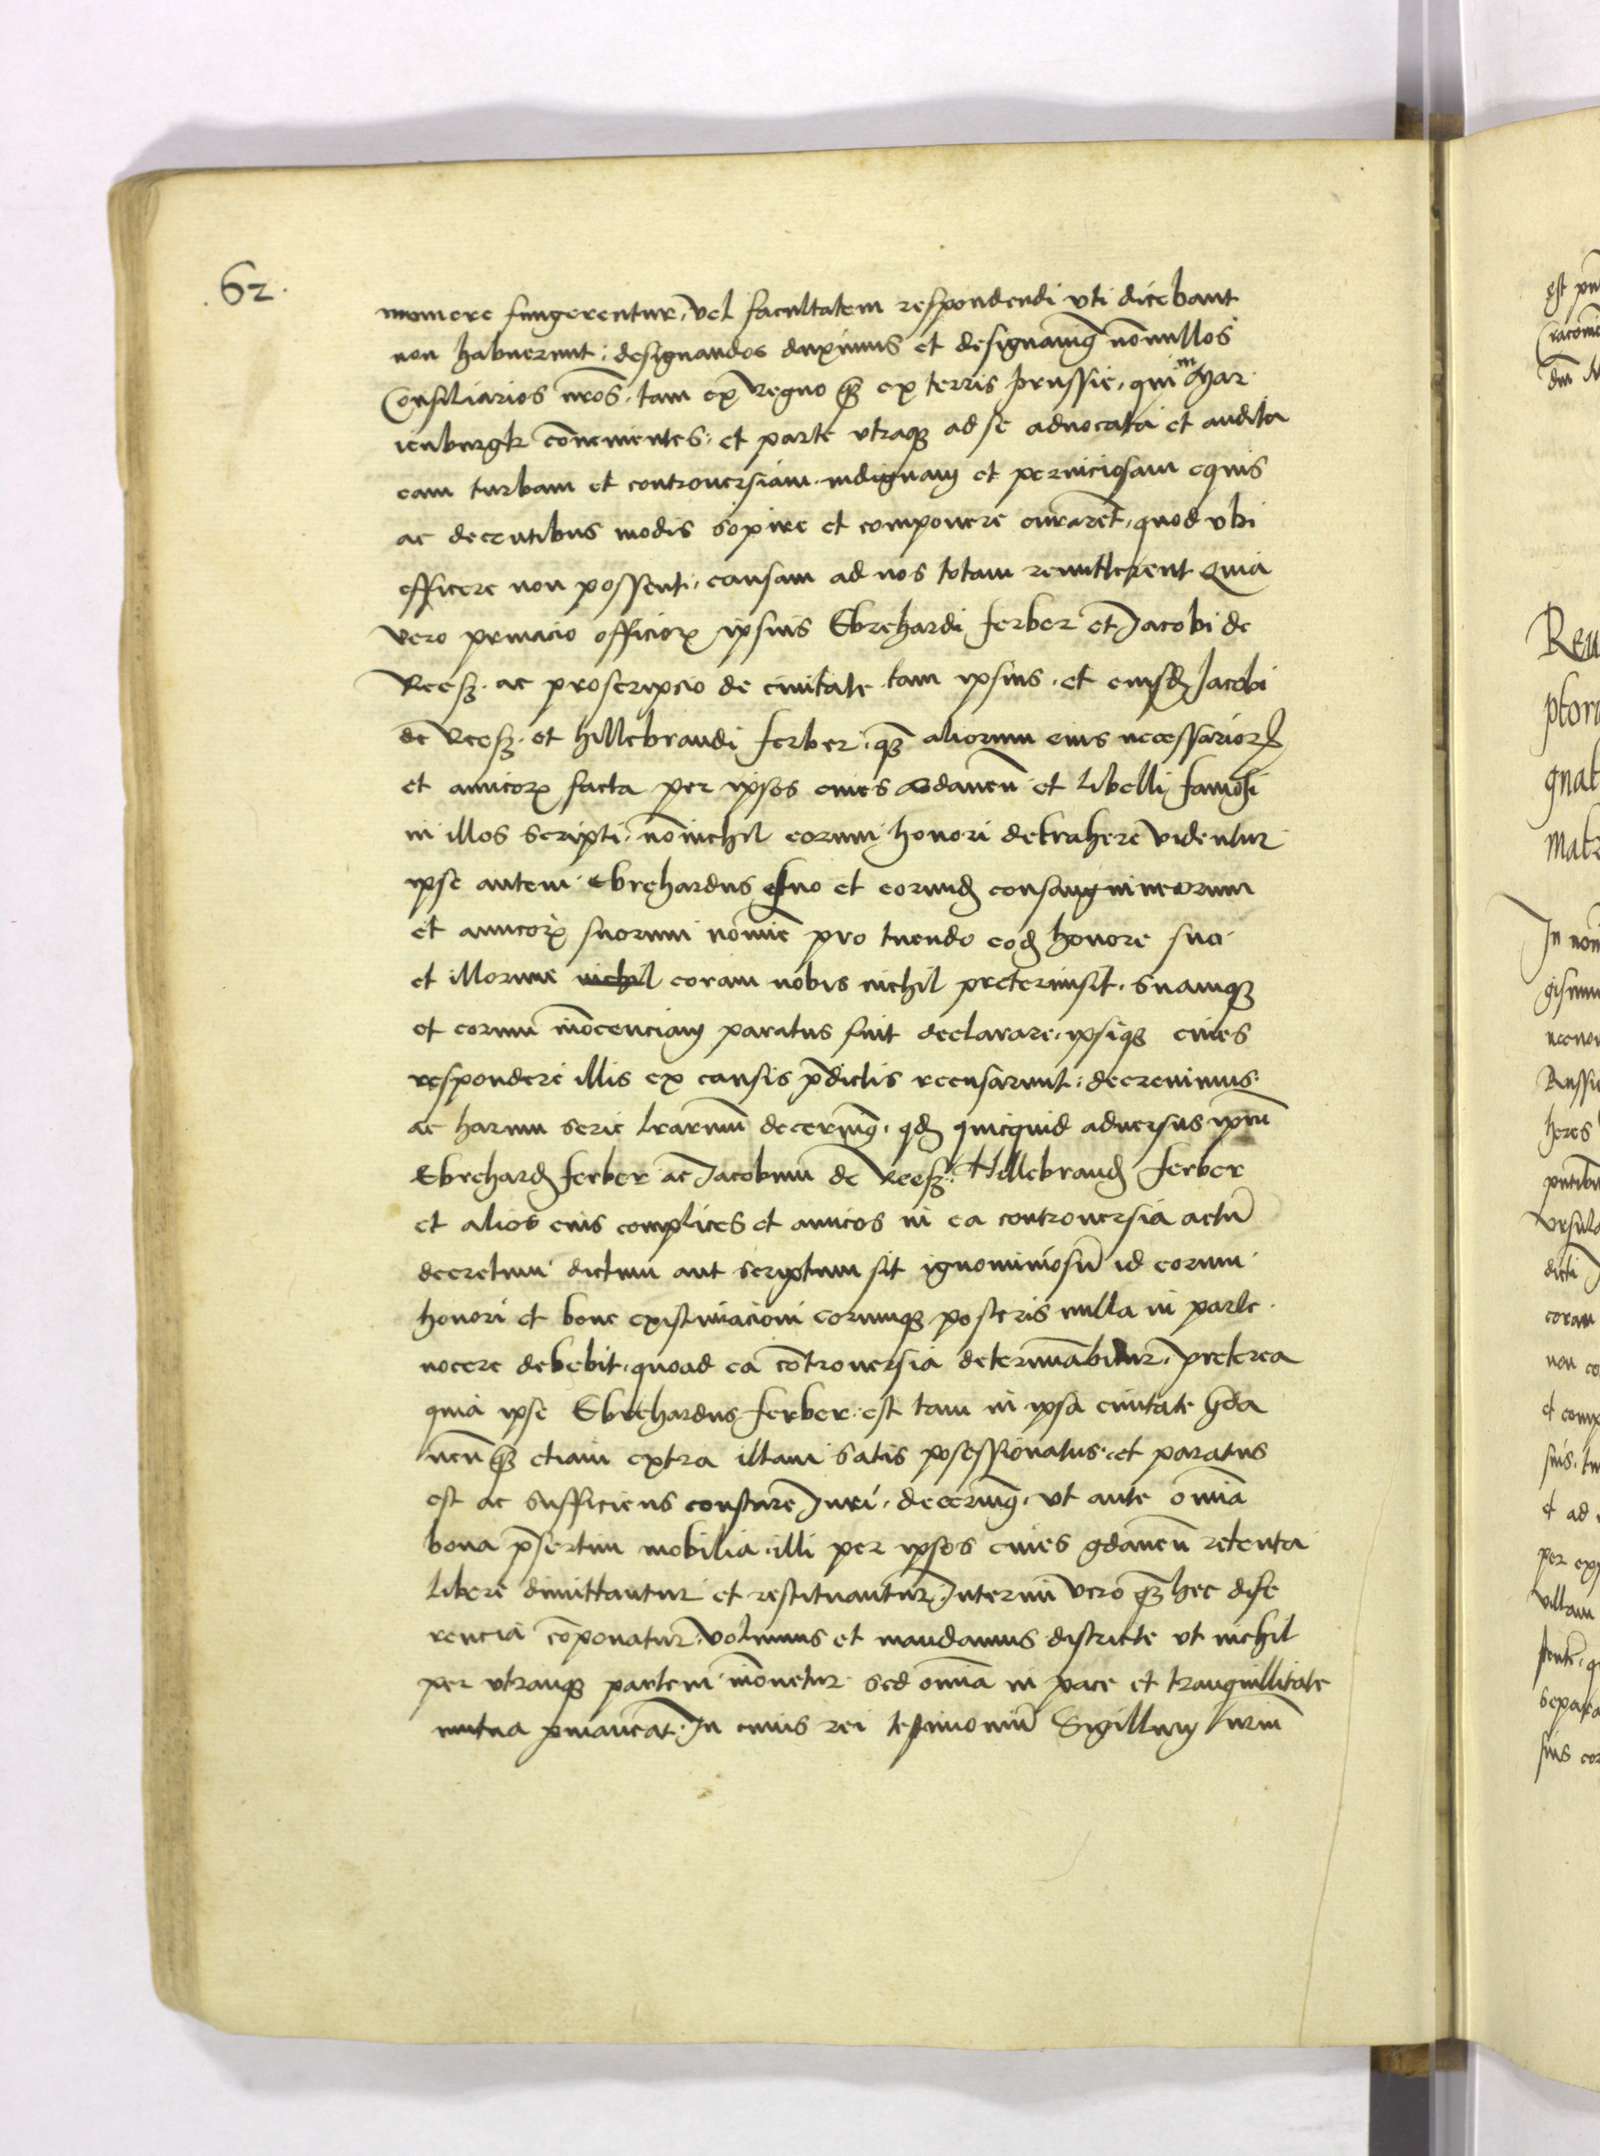 .62.
munere fungerentur, vel facultatem respondendi vti dicebant
non habuerunt: designandos duximus et designamq nonnullos
Consiliarios nros, tam ex Regno qz ex terris prussie, qui in Mar
ienburgk conuenientes: et parte vtraqz ad se aduocata et audita
eam turbam et controuersiam indignam et perniciosam equis
ac decentibus modis sopire et componere curarent, quod vbi
efficere non possent, causam ad nos totam remitterent Quia
vero priuacio officiorz ipsius Ebrehardi ferber et Jacobi de
Reesz ac proscripcio de ciuitate tam ipsius et eiusd Jacobi
de Reesz et hillebrandi ferber, qz aliorum eius necessariorz
et amicorz facta per ipsos ciues Gdanen et libelli famosi
in illos scripti, nonnichil eorum honori detrahere videntur
ipse autem Ebrehardus suo et eorund consanguineorum
et amicorz suorum nomine pro tuendo eod honore sua
et illorum nichil coram nobis nichil pretermisit, suamqz
et eorum innocenciam paratus fuit declarare, ipsiqz ciues
respondere illis ex causis pdictis recusarunt: decreuimus
ac harum serie lrarum decernimq, qd quicquid aduersus ipm
Ebrehard ferber ac Jacobum de Reesz: Hillebrand ferber
et alios eius complices et amicos in ea controuersia actu
decretum dictum aut scriptum sit ignominiosu id eorum
honori et bone existimacioni eorumqz posteris nulla in parte
nocere debebit, quoad ea controuersia determinabitur, preterea
quia ipse Ebrehardus ferber est tam in ipsa ciuitate Gda
nen qz etiam extra illam satis posessionatus, et paratus
est ac sufficiens constare Juri, decernimq, vt ante omnia
bona psertim mobilia, illi per ipsos ciues gdanen retenta
libere dimittantur et restituantur, Interim vero qz hec dife
rencia componatur, volumus et mandamus districte vt nichil
per vtranqz partem innouetur sed omnia in pace et tranquillitate
mutua pmaneat. In cuius rei testimoniu Sigillum nrum